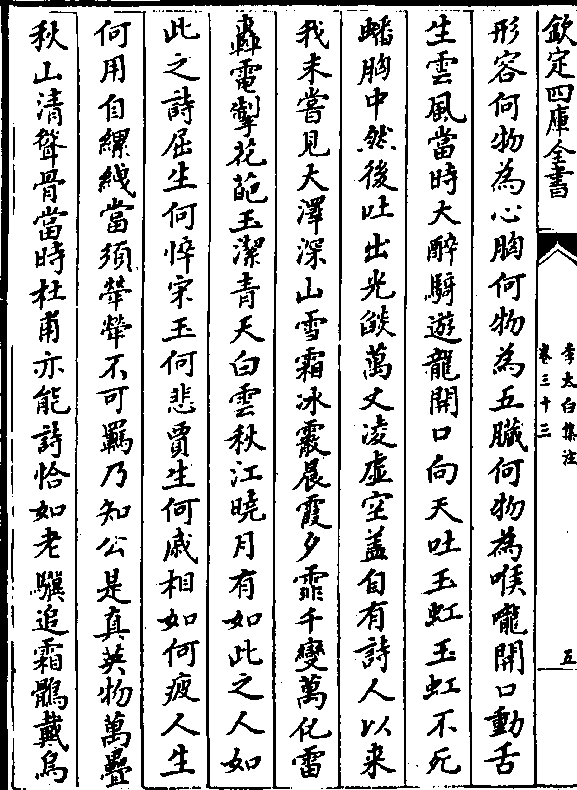 欽定四庫全書
李太白集注
卷三十三
五
形容何物為心胸何物為五臟何物為喉嚨開口動舌
生雲風當時大醉騎遊龍開口向天吐玉虹玉虹不死
蟠胸中然後吐出光燄萬丈凌虛空蓋自有詩人以來
我未嘗見大澤深山雪霜冰霰晨霞夕霏千變萬化雷
轟電掣花葩玉潔青天白雲秋江曉月有如此之人如
此之詩屈生何悴宋玉何悲賈生何戚相如何疲人生
何用自縲紲當須犖犖不可羈乃知公是真英物萬疊
秋山清聳骨當時杜甫亦能詩恰如老驥追霜鶻戴烏